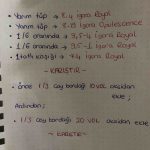 • Yarım tüp → 8.4 igora Royal
• Yarım tüp → 8.19 igora Opulescence
• 1/6 oranında → 9,5-4 igora Royal
• 1/6 oranında → 9.5-1 igora Royal
• 1 tatlı kaşığı → 7.4 igora Royal
- KARIŞTIR -
• Önce 1/3 çay bardağı 10 VOL oksidan
ekle;
Ardından;
• 1/3 çay bardağı 20 VOL oksidan ekle;
- KARIŞTIR -